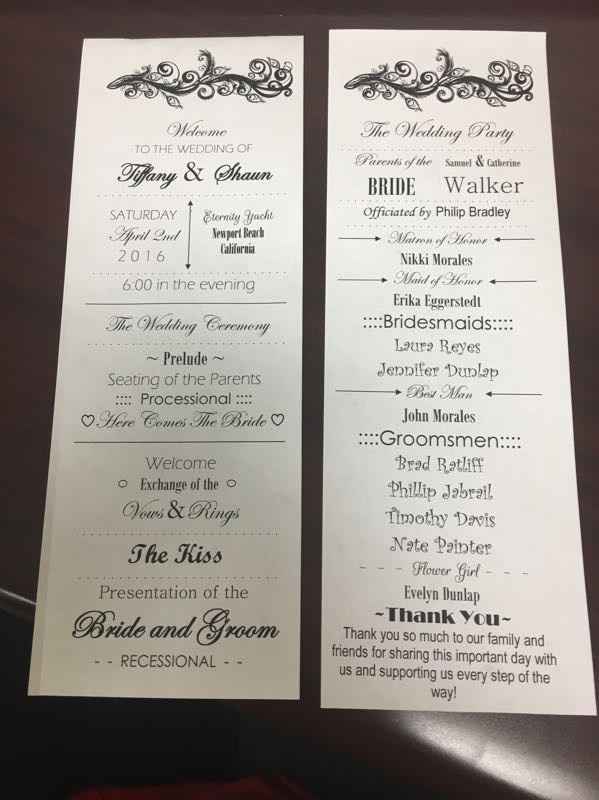 Welcome
TO THE WEDDING OF
Tiffany & Shaun
SATURDAY
April 2nd
2016
Eternity Yacht
Newport Beach
California
6:00 in the evening
The Wedding Ceremony
~ Prelude ~
Seating of the Parents
:::: Processional ::::
♡ Here Comes The Bride ♡
Welcome
○ Exchange of the ○
Vows & Rings
The Kiss
Presentation of the
Bride and Groom
- - RECESSIONAL - -
The Wedding Party
Parents of the
BRIDE
Samuel & Catherine
Walker
Officiated by Philip Bradley
Matron of Honor
Nikki Morales
Maid of Honor
Erika Eggerstedt
::::Bridesmaids::::
Laura Reyes
Jennifer Dunlap
Best Man
John Morales
::::Groomsmen::::
Brad Ratliff
Phillip Jabrail
Timothy Davis
Nate Painter
- - - Flower Girl - - -
Evelyn Dunlap
~Thank You~
Thank you so much to our family and
friends for sharing this important day with
us and supporting us every step of the
way!